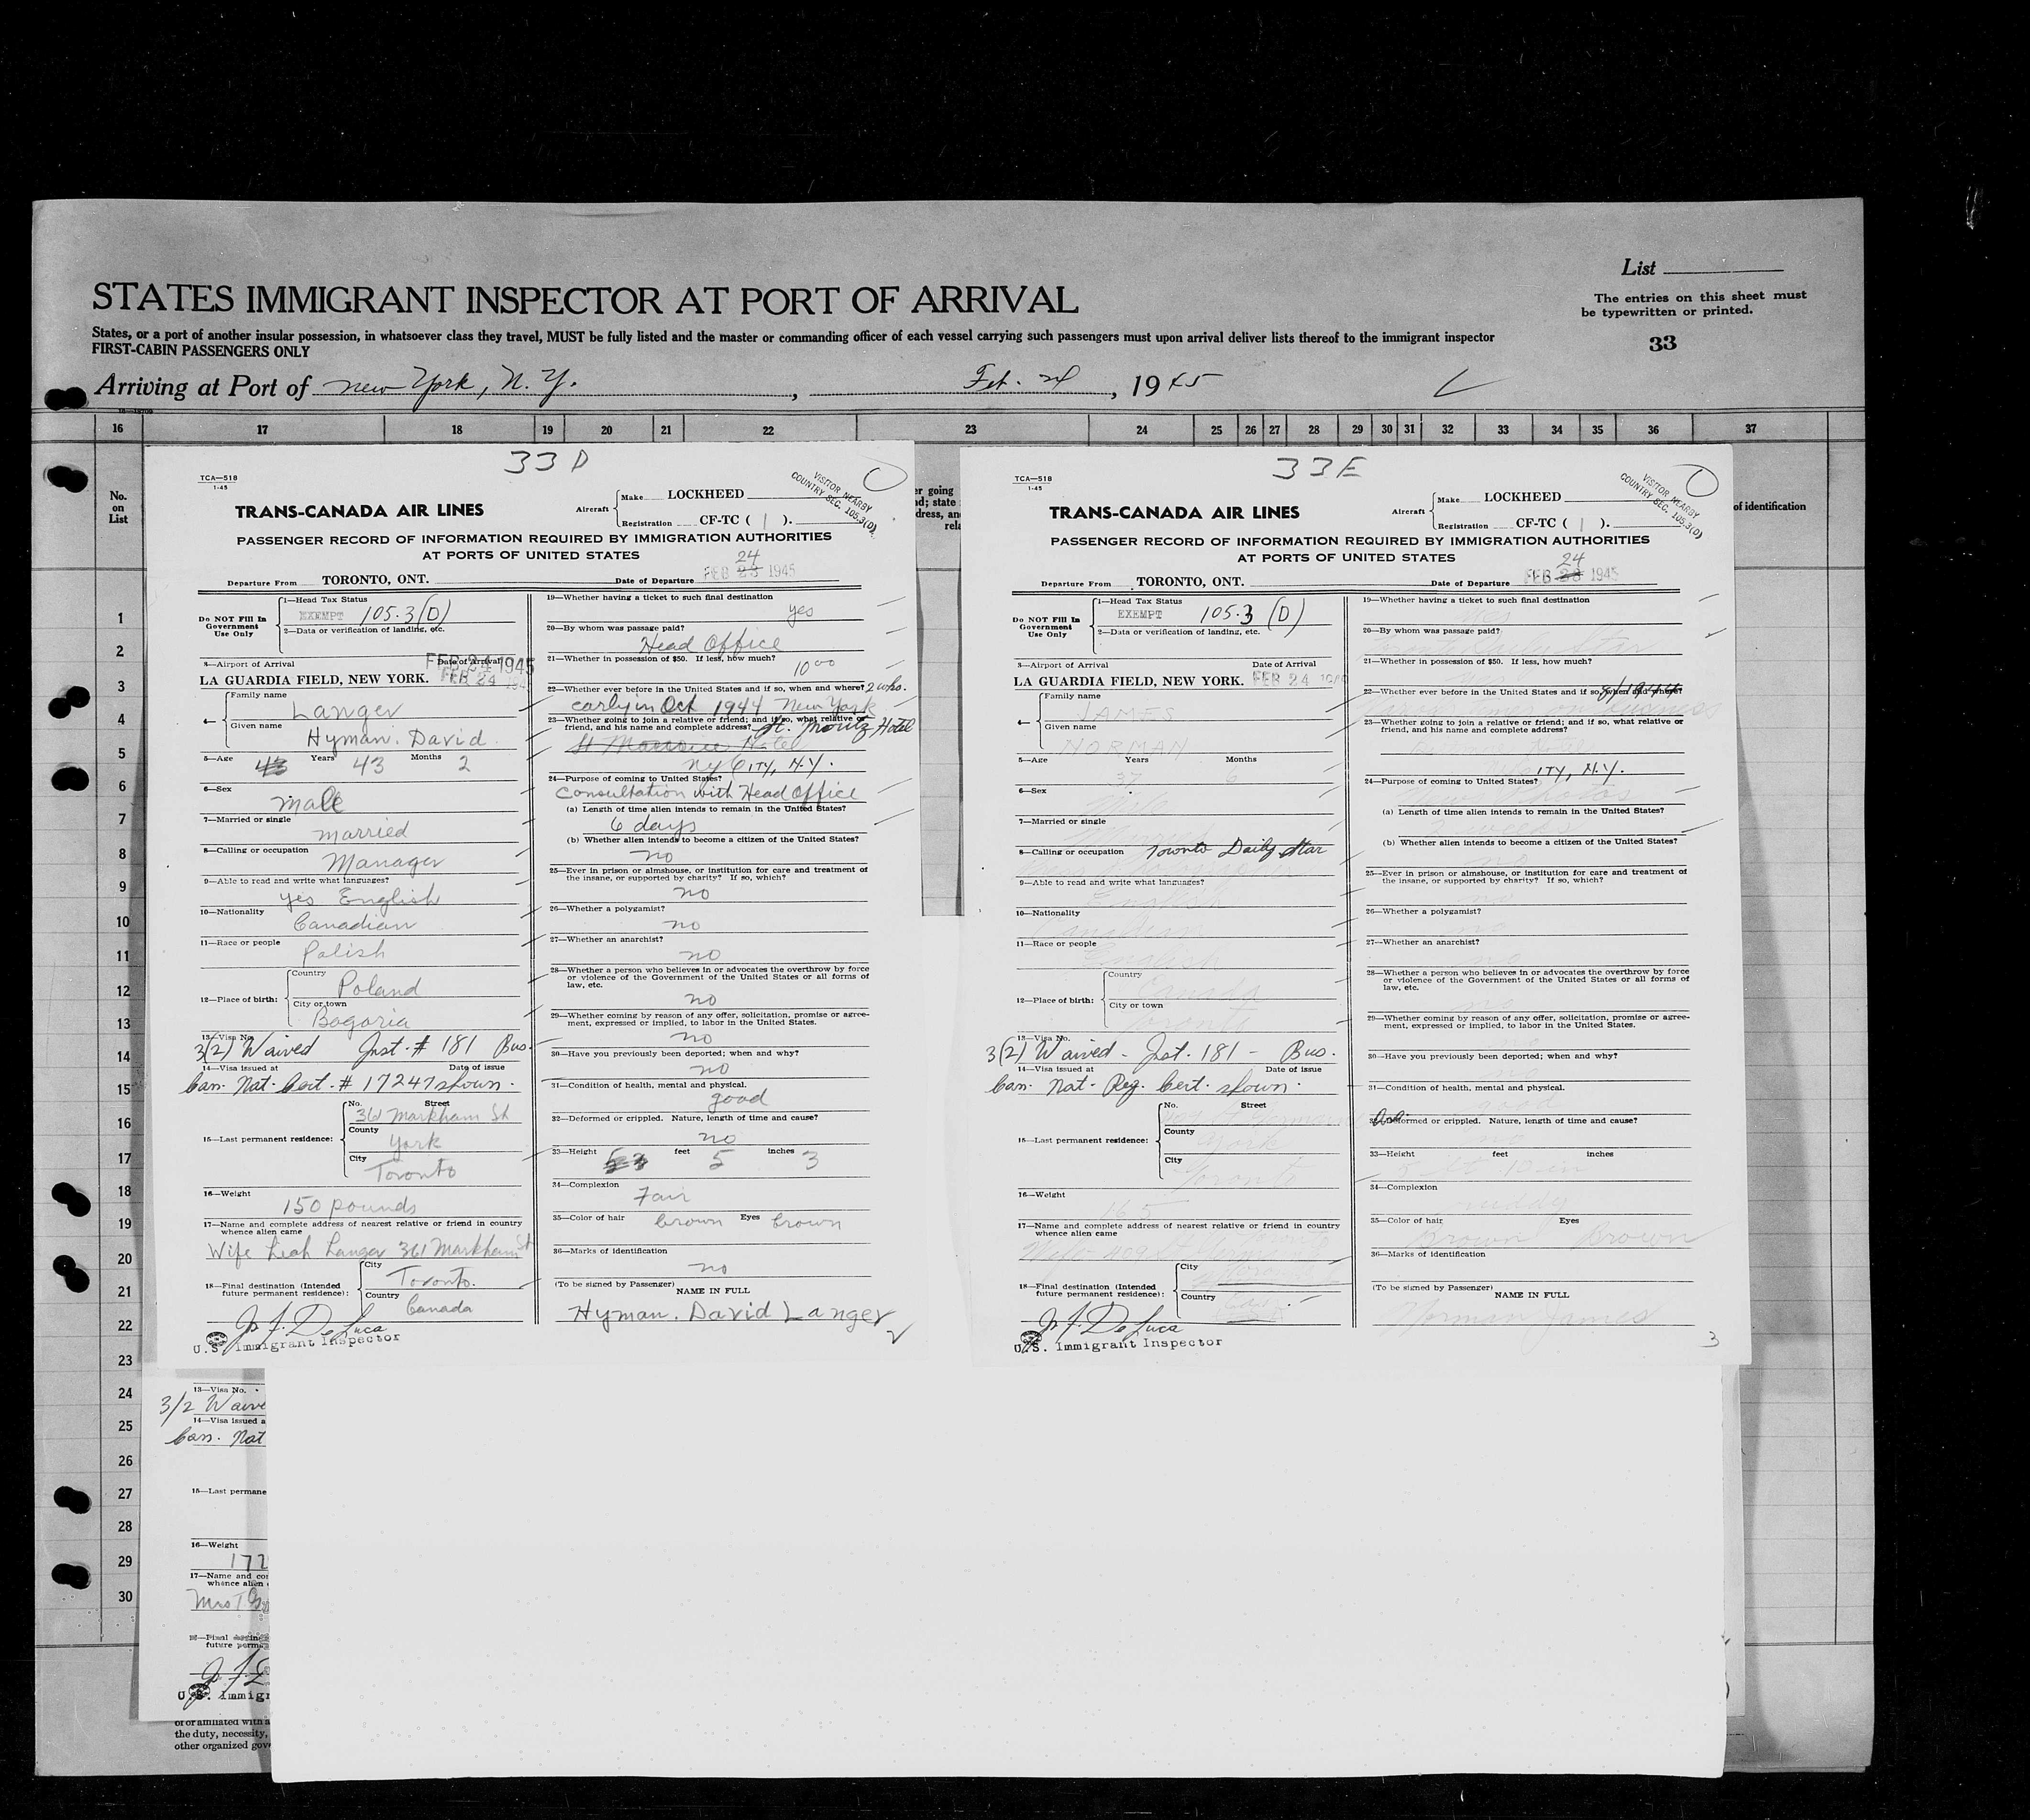 List
STATES IMMIGRANT INSPECTOR AT PORT OF ARRIVAL
The entries on this sheet must
be typewritten or printed.
States, or a port of another insular possession, in whatsoever class they travel, MUST be fully listed and the master or commanding officer of each vessel carrying such passengers must upon arrival deliver lists thereof to the immigrant inspector
FIRST-CABIN PASSENGERS ONLY
33
Arriving at Port of New York, N.Y., Feb. 24, 1945
16 17 18 19 20 21 22 23 24 25 26 27 28 29 30 31 32 33 34 35 36 37
No.
on
List
of identification
1
2
3
4
5
6
7
8
9
10
11
12
13
14
15
16
17
18
19
20
21
22
23
24
25
26
27
28
29
30
33 D
TCA—518
1-45
TRANS-CANADA AIR LINES
Aircraft
Make LOCKHEED
Registration CF-TC ( 1 ).
VISITOR NEARBY
COUNTRY SEC. 105.3(D)
PASSENGER RECORD OF INFORMATION REQUIRED BY IMMIGRATION AUTHORITIES
AT PORTS OF UNITED STATES
24
Departure From TORONTO, ONT. Date of Departure FEB 23 1945
Do NOT Fill In
Government
Use Only
1—Head Tax Status
EXEMPT 105.3 (D)
2—Data or verification of landing, etc.
3—Airport of Arrival Date of Arrival
FEB 24 1945
LA GUARDIA FIELD, NEW YORK. FEB 24 194
4—
Family name
Langer
Given name
Hyman. David
5—Age 43 Years 43 Months 2
6—Sex
male
7—Married or single
married
8—Calling or occupation
Manager
9—Able to read and write what languages?
yes English
10—Nationality
Canadian
11—Race or people
Polish
12—Place of birth:
Country
Poland
City or town
Bogoria
13—Visa No.
3(2) Waived Inst. # 181 Bus.
14—Visa issued at Date of issue
Can. Nat. Cert. # 17247 shown.
15—Last permanent residence:
No. Street
361 Markham St
County
York
City
Toronto
16—Weight
150 pounds
17—Name and complete address of nearest relative or friend in country
whence alien came
Wife Leah Langer 361 Markham St
18—Final destination (Intended
future permanent residence):
City
Toronto.
Country
Canada
J. F. De Luca
U.S. Immigrant Inspector
19—Whether having a ticket to such final destination
yes
20—By whom was passage paid?
Head Office
21—Whether in possession of $50. If less, how much?
10 00
22—Whether ever before in the United States and if so, when and where? 2 wks.
early in Oct 1944 New York
23—Whether going to join a relative or friend; and if so, what relative or
friend, and his name and complete address? St. Moritz Hotel
Hotel
NY CITY, N.Y.
24—Purpose of coming to United States?
Consultation with Head Office
(a) Length of time alien intends to remain in the United States?
6 days
(b) Whether alien intends to become a citizen of the United States?
no
25—Ever in prison or almshouse, or institution for care and treatment of
the insane, or supported by charity? If so, which?
no
26—Whether a polygamist?
no
27—Whether an anarchist?
no
28—Whether a person who believes in or advocates the overthrow by force
or violence of the Government of the United States or all forms of
law, etc.
no
29—Whether coming by reason of any offer, solicitation, promise or agree-
ment, expressed or implied, to labor in the United States.
no
30—Have you previously been deported; when and why?
no
31—Condition of health, mental and physical.
good
32—Deformed or crippled. Nature, length of time and cause?
no
33—Height feet 5 inches 3
34—Complexion
Fair
35—Color of hair brown Eyes brown
36—Marks of identification
no
(To be signed by Passenger)
NAME IN FULL
Hyman. David Langer
2
33 E
TCA—518
1-45
TRANS-CANADA AIR LINES
Aircraft
Make LOCKHEED
Registration CF-TC ( 1 ).
VISITOR NEARBY
COUNTRY SEC. 105.3(D)
PASSENGER RECORD OF INFORMATION REQUIRED BY IMMIGRATION AUTHORITIES
AT PORTS OF UNITED STATES
24
Departure From TORONTO, ONT. Date of Departure FEB 23 1945
Do NOT Fill In
Government
Use Only
1—Head Tax Status
EXEMPT 105.3 (D)
2—Data or verification of landing, etc.
3—Airport of Arrival Date of Arrival
LA GUARDIA FIELD, NEW YORK. FEB 24
4—
Family name
JAMES
Given name
NORMAN
5—Age Years Months
37 6
6—Sex
7—Married or single
Married
8—Calling or occupation Toronto Daily Star
9—Able to read and write what languages?
English
10—Nationality
Canadian
11—Race or people
English
12—Place of birth:
Country
Canada
City or town
Toronto
13—Visa No.
3(2) Waived - Inst. 181 - Bus.
14—Visa issued at Date of issue
Can. Nat. Reg. Cert. shown.
15—Last permanent residence:
No. Street
County
York
City
Toronto
16—Weight
165
17—Name and complete address of nearest relative or friend in country
whence alien came
Wife 409
18—Final destination (Intended
future permanent residence):
City
Toronto
Country
J. F. De Luca
U.S. Immigrant Inspector
19—Whether having a ticket to such final destination
yes
20—By whom was passage paid?
Star
21—Whether in possession of $50. If less, how much?
yes
22—Whether ever before in the United States and if so, when and where?
on business
23—Whether going to join a relative or friend; and if so, what relative or
friend, and his name and complete address?
ITY, N.Y.
24—Purpose of coming to United States?
(a) Length of time alien intends to remain in the United States?
weeks
(b) Whether alien intends to become a citizen of the United States?
no
25—Ever in prison or almshouse, or institution for care and treatment of
the insane, or supported by charity? If so, which?
no
26—Whether a polygamist?
no
27—Whether an anarchist?
no
28—Whether a person who believes in or advocates the overthrow by force
or violence of the Government of the United States or all forms of
law, etc.
no
29—Whether coming by reason of any offer, solicitation, promise or agree-
ment, expressed or implied, to labor in the United States.
no
30—Have you previously been deported; when and why?
no
31—Condition of health, mental and physical.
good
32—Deformed or crippled. Nature, length of time and cause?
no
33—Height feet inches
5 ft 10 in
34—Complexion
ruddy
35—Color of hair Eyes
Brown Brown
36—Marks of identification
(To be signed by Passenger)
NAME IN FULL
Norman James
3
13—Visa No.
3/2 Waive
14—Visa issued a
Can. Nat
15—Last permane
16—Weight
172
17—Name and co
whence alien
Mrs T
future perm
U.S. Immigr
of or affiliated with a
the duty, necessity,
other organized gov